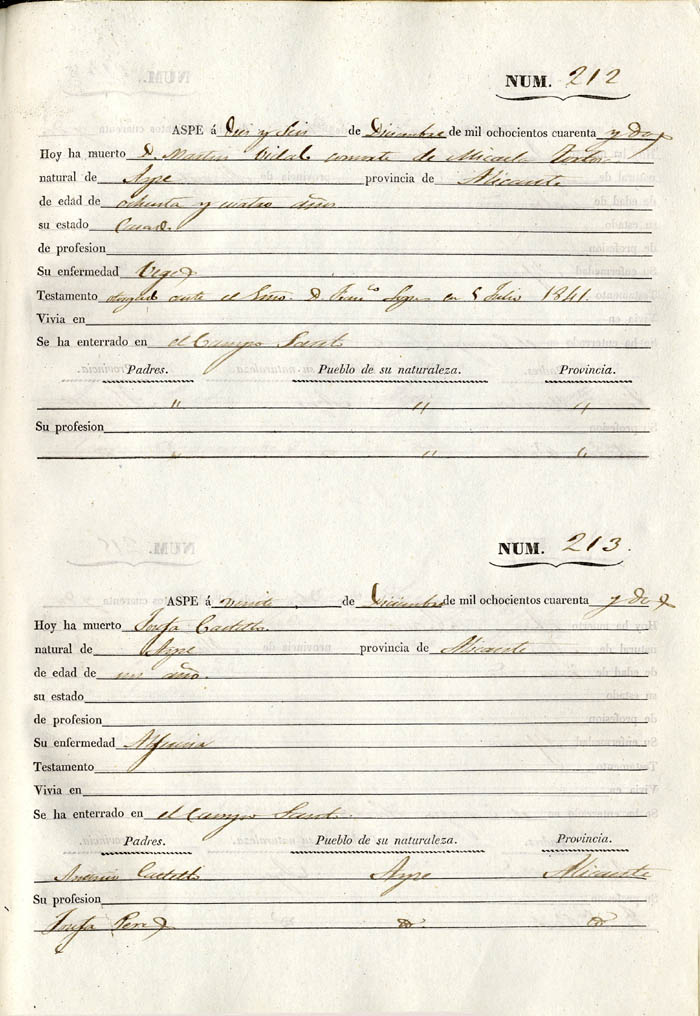 NUM. 212
ASPE á Diez y Seis de Diciembre de mil ochocientos cuarenta y dos
Hoy ha muerto D. Martin Vidal consorte de Micaela
natural de Aspe provincia de Alicante
de edad de ochenta y cuatro años
su estado
de profesion
Su enfermedad Vegez
Testamento ante el D. en 5 Julio 1841.
Vivia en
Se ha enterrado en el Campo Santo
Padres. Pueblo de su naturaleza. Provincia.
" " "
Su profesion
" " "
NUM. 213.
ASPE á veinte de Diciembre de mil ochocientos cuarenta y dos
Hoy ha muerto Josefa Castelló
natural de Aspe provincia de Alicante
de edad de un año.
su estado
de profesion
Su enfermedad Alferecia
Testamento
Vivia en
Se ha enterrado en el Campo Santo
Padres. Pueblo de su naturaleza. Provincia.
Antonio Castelló Aspe Alicante
Su profesion
Josefa Perez